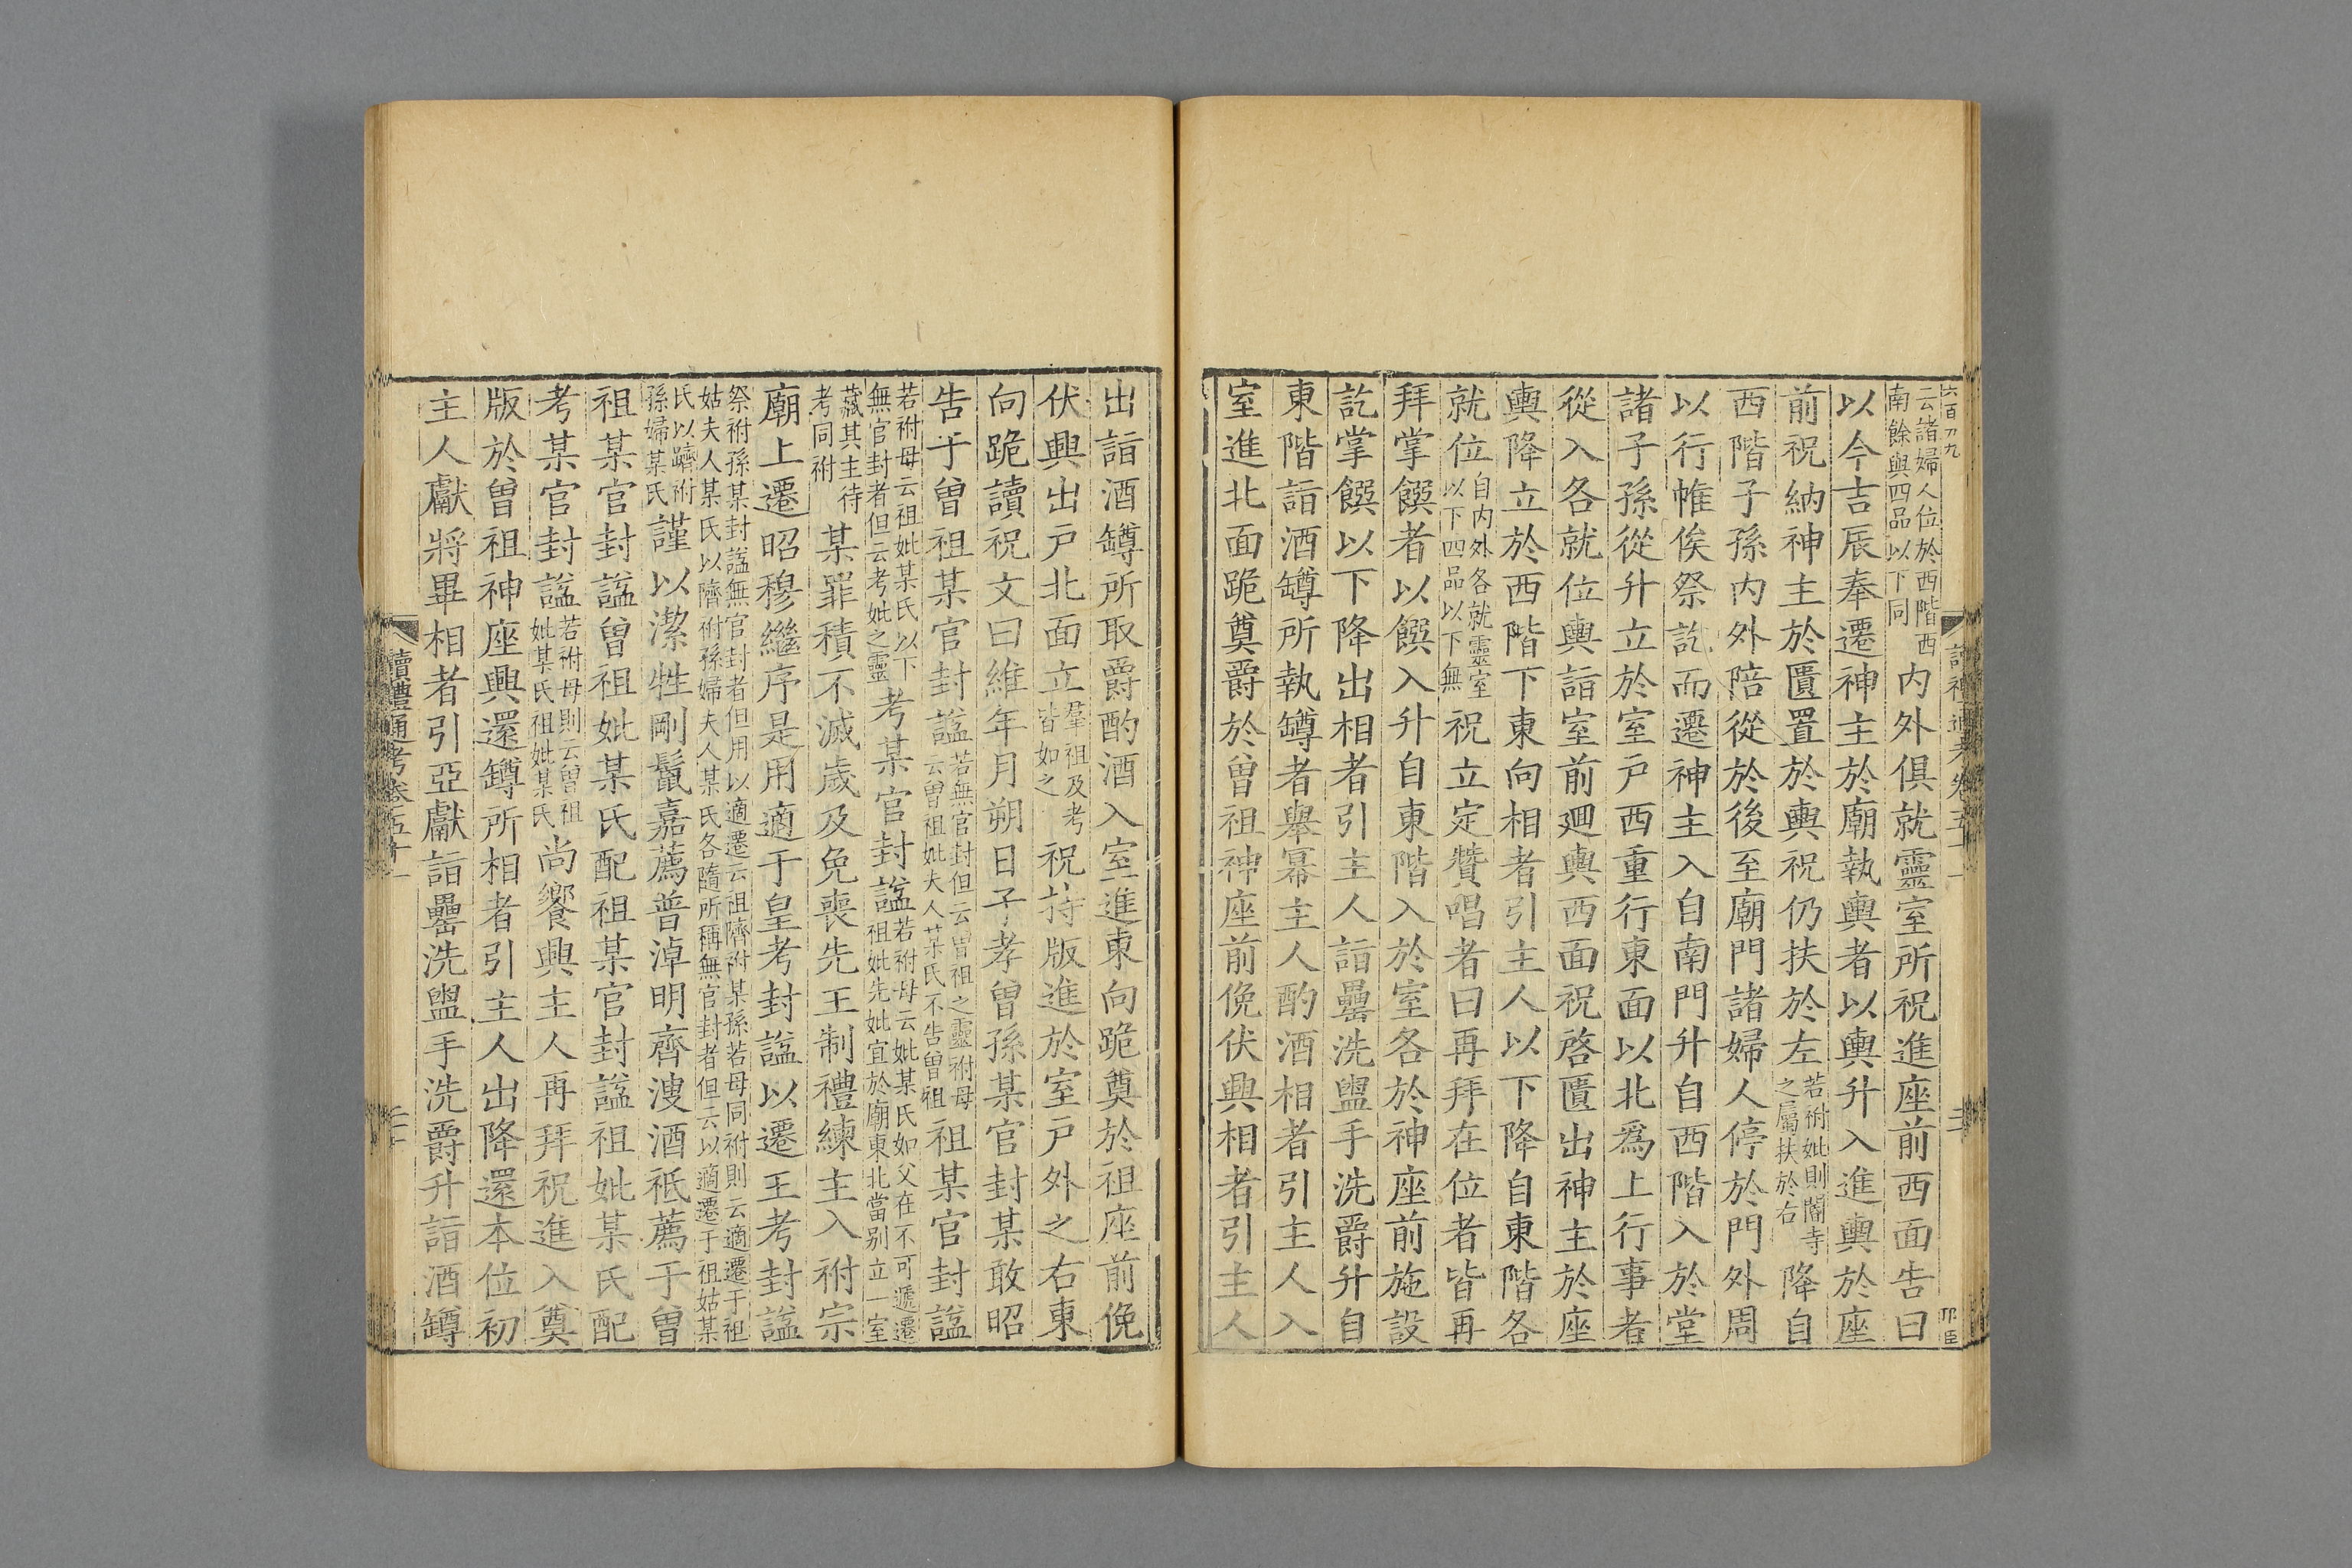 六百刀九
云諸婦人位於西階西南餘與四品以下同内外俱就靈室所祝進座前西面告曰
以今吉辰奉遷神主於廟執輿者以輿升入進輿於座
前祝納神主於匱置於輿祝仍扶於左若祔妣則閽寺之屬扶於右降自
西階子孫内外陪從於後至廟門諸婦人停於門外周
以行帷俟祭訖而遷神主入自南門升自西階入於堂
諸子孫從升立於室户西重行東面以北爲上行事者
從入各就位輿詣室前廻輿西面祝啓匱出神主於座
輿降立於西階下東向相者引主人以下降自東階各
就位自内外各就靈室以下四品以下無祝立定贊唱者曰再拜在位者皆再
拜掌饌者以饌入升自東階入於室各於神座前施設
訖掌饌以下降出相者引主人詣罍洗盥手洗爵升自
東階詣酒罇所執罇者舉冪主人酌酒相者引主人入
室進北面跪奠爵於曾祖神座前俛伏興相者引主人
出詣酒罇所取爵酌酒入室進東向跪奠於祖座前俛
伏興出户北面立羣祖及考皆如之祝持版進於室户外之右東
向跪讀祝文曰維年月朔日子孝曾孫某官封某敢昭
告于曾祖某官封諡若無官封但云曾祖之靈祔母云曾祖妣夫人某氏不告曾祖祖某官封諡
若祔母云祖妣某氏以下無官封者但云考妣之靈考某官封諡若祔母云妣某氏如父在不可遞遷祖妣先妣宜於廟東北當别立一室
藏其主待考同祔某罪積不滅歲及免喪先王制禮練主入祔宗
廟上遷昭穆繼序是用適于皇考封諡以遷王考封諡
祭祔孫某封諡無官封者但用以適遷云祖隮祔某孫若母同祔則云適遷于祖姑夫人某氏以隮祔孫婦夫人某氏各隨所稱無官封者但云以適遷于祖姑某
氏以躋祔孫婦某氏謹以潔牲剛鬛嘉薦普淖明齊溲酒祗薦于曾
祖某官封諡曾祖妣某氏配祖某官封諡祖妣某氏配
考某官封諡若祔母則云曾祖妣某氏祖妣某氏尚饗興主人再拜祝進入奠
版於曾祖神座興還罇所相者引主人出降還本位初
主人獻將畢相者引亞獻詣罍洗盥手洗爵升詣酒罇
讀禮通考卷五十一
二十